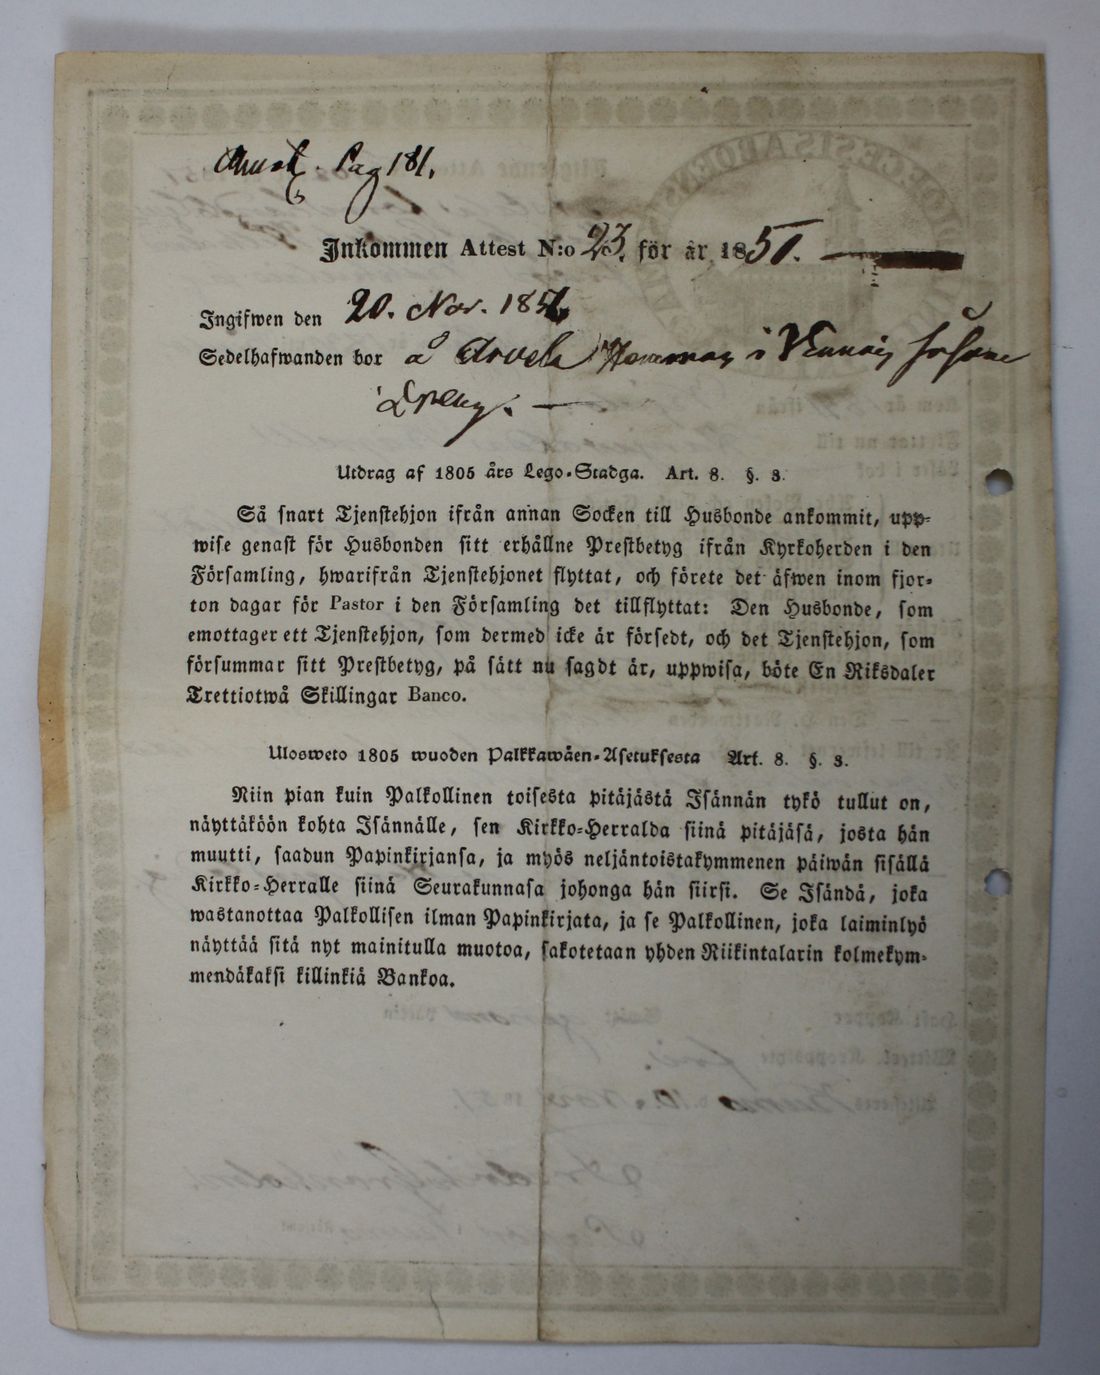 Pag 181.
Inkommen Attest N:o 23. för år 1851.
Ingifwen den 20. Nov. 1851.
Sedelhafwanden bor å Arvela i
Dreng.
Utdrag af 1805 års Lego-Stadga. Art. 8. §. 3.
Så snart Tjenstehjon ifrån annan Socken till Husbonde ankommit, upp-
wise genast för Husbonden sitt erhållne Prestbetyg ifrån Kyrkoherden i den
Församling, hwarifrån Tjenstehjonet flyttat, och förete det äfwen inom fjor-
ton dagar för Pastor i den Församling det tillflyttat: Den Husbonde, som
emottager ett Tjenstehjon, som dermed icke är försedt, och det Tjenstehjon, som
försummar sitt Prestbetyg, på sätt nu sagdt är, uppwisa, böte En Riksdaler
Trettiotwå Skillingar Banco.
Ulosweto 1805 wuoden Palkkawäen-Asetuksesta Art. 8. §. 3.
Niin pian kuin Palkollinen toisesta pitäjästä Isännän tykö tullut on,
näyttäköön kohta Isännälle, sen Kirkko-Herralda siinä pitäjäsä, josta hän
muutti, saadun Papinkirjansa, ja myös neljäntoistakymmenen päiwän sisällä
Kirkko-Herralle siinä Seurakunnasa johonga hän siirsi. Se Isändä, joka
wastanottaa Palkollisen ilman Papinkirjata, ja se Palkollinen, joka laiminlyö
näyttää sitä nyt mainitulla muotoa, sakotetaan yhden Riikintalarin kolmekym-
mendäkaksi killinkiä Bankoa.